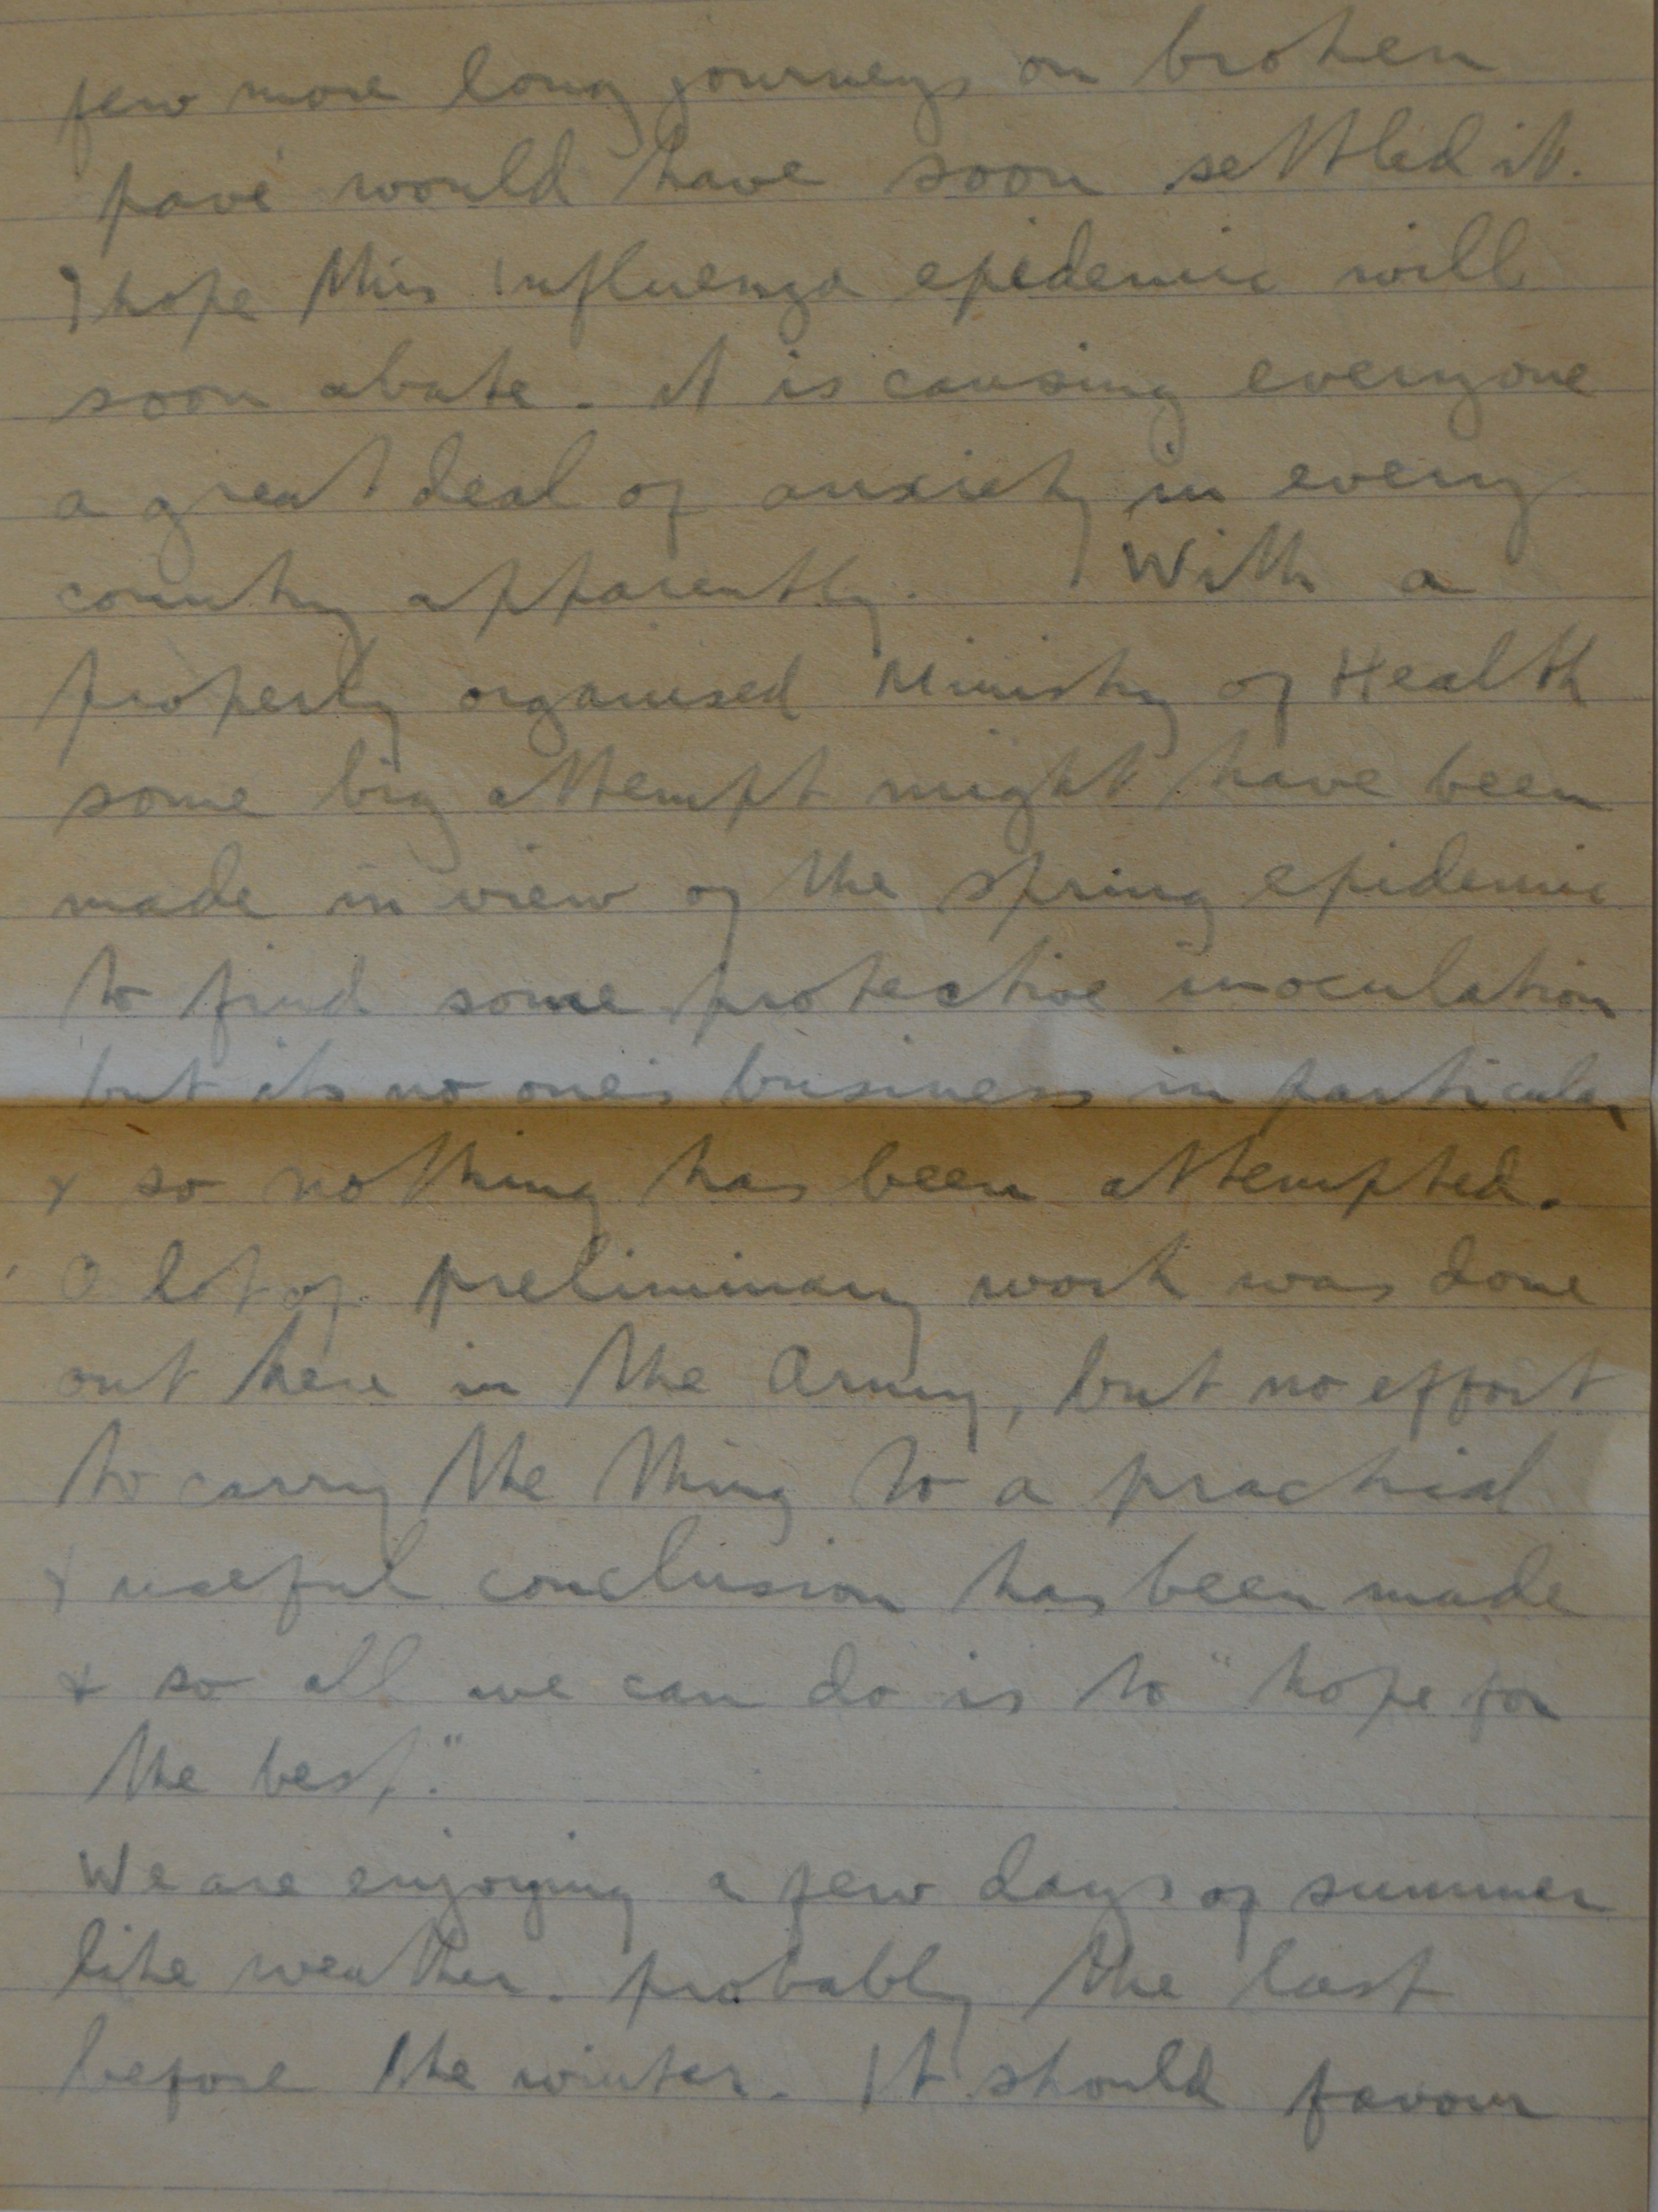 few more long journeys on broken
pavé would have soon settled it.
I hope this influenza epidemic will
soon abate. it is causing everyone
a great deal of anxiety in every
country apparently. With a
properly organised Ministry of Health
some big attempt might have been
made in view of the spring epidemic
to find some protective inoculation
but its no one's business in particular
& so nothing has been attempted.
A lot of preliminary work was done
out here in the Army, but no effort
to carry the thing to a practical
& useful conclusion has been made
& so all we can do is to "hope for
the best."
We are enjoying a few days of summer
like weather. probably the last
before the winter. It should favour